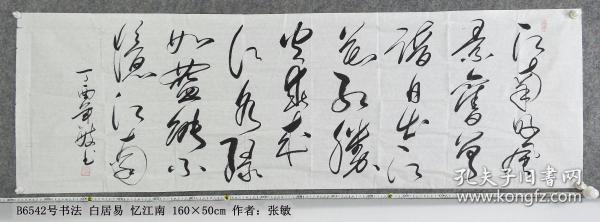 江南好風
景舊曾
諳日出江
花紅勝
火春来
江水綠
如藍能不
憶江南
丁酉年敏书
孔夫子旧书网
kongfz.com
B6542号书法 白居易 忆江南 160×50cm 作者：张敏